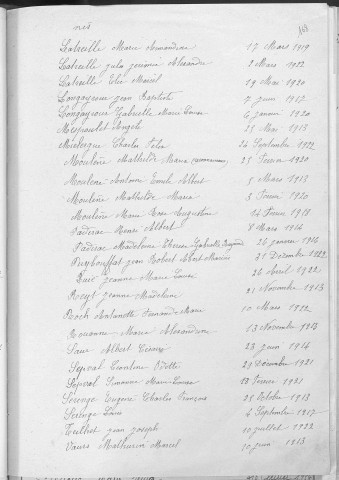 nés
Latreille Marie Amandine 17 Mars 1919
Latreille Julia Jeanne Alexandre 2 Mars 1922
Latreille Elie Marcel 19 Mai 1920
Longayroux Jean Baptiste 7 Juin 1917
Longayroux Gabrielle Marie Louise 6 Janvier 1920
Angèle 25 Mai 1913
Miclergue Charles Félix 24 Septembre 1922
Moulène Mathilde Marie 25 Février 1920
Moulène Antoine Emile Albert 5 Mars 1913
Moulène Mathilde Marie 3 Février 1920
Moulène Marie Rose Augustine 14 Février 1918
Henri Albert 8 Mars 1914
Madeleine Thérèse Gabrielle 26 Janvier 1916
Puybouffat Jean Robert Albert Maurice 31 Décembre 1922
Jeanne Marie Louise 26 Avril 1922
Jeanne Madeleine 21 Novembre 1913
Roch Antoinette Fernande Marie 10 Mars 1922
Rouanne Marie Alexandrine 13 Novembre 1913
Albert 23 Juin 1914
Sepval Léontine Odette 29 Décembre 1921
Sepval Simonne Marie Louise 13 Février 1921
Serenge Eugène Charles François 21 Octobre 1913
Serenge Louis 6 Septembre 1917
Teulbet Jean Joseph 10 Juillet 1922
Vaurs Mathurin Marcel 10 Juin 1913